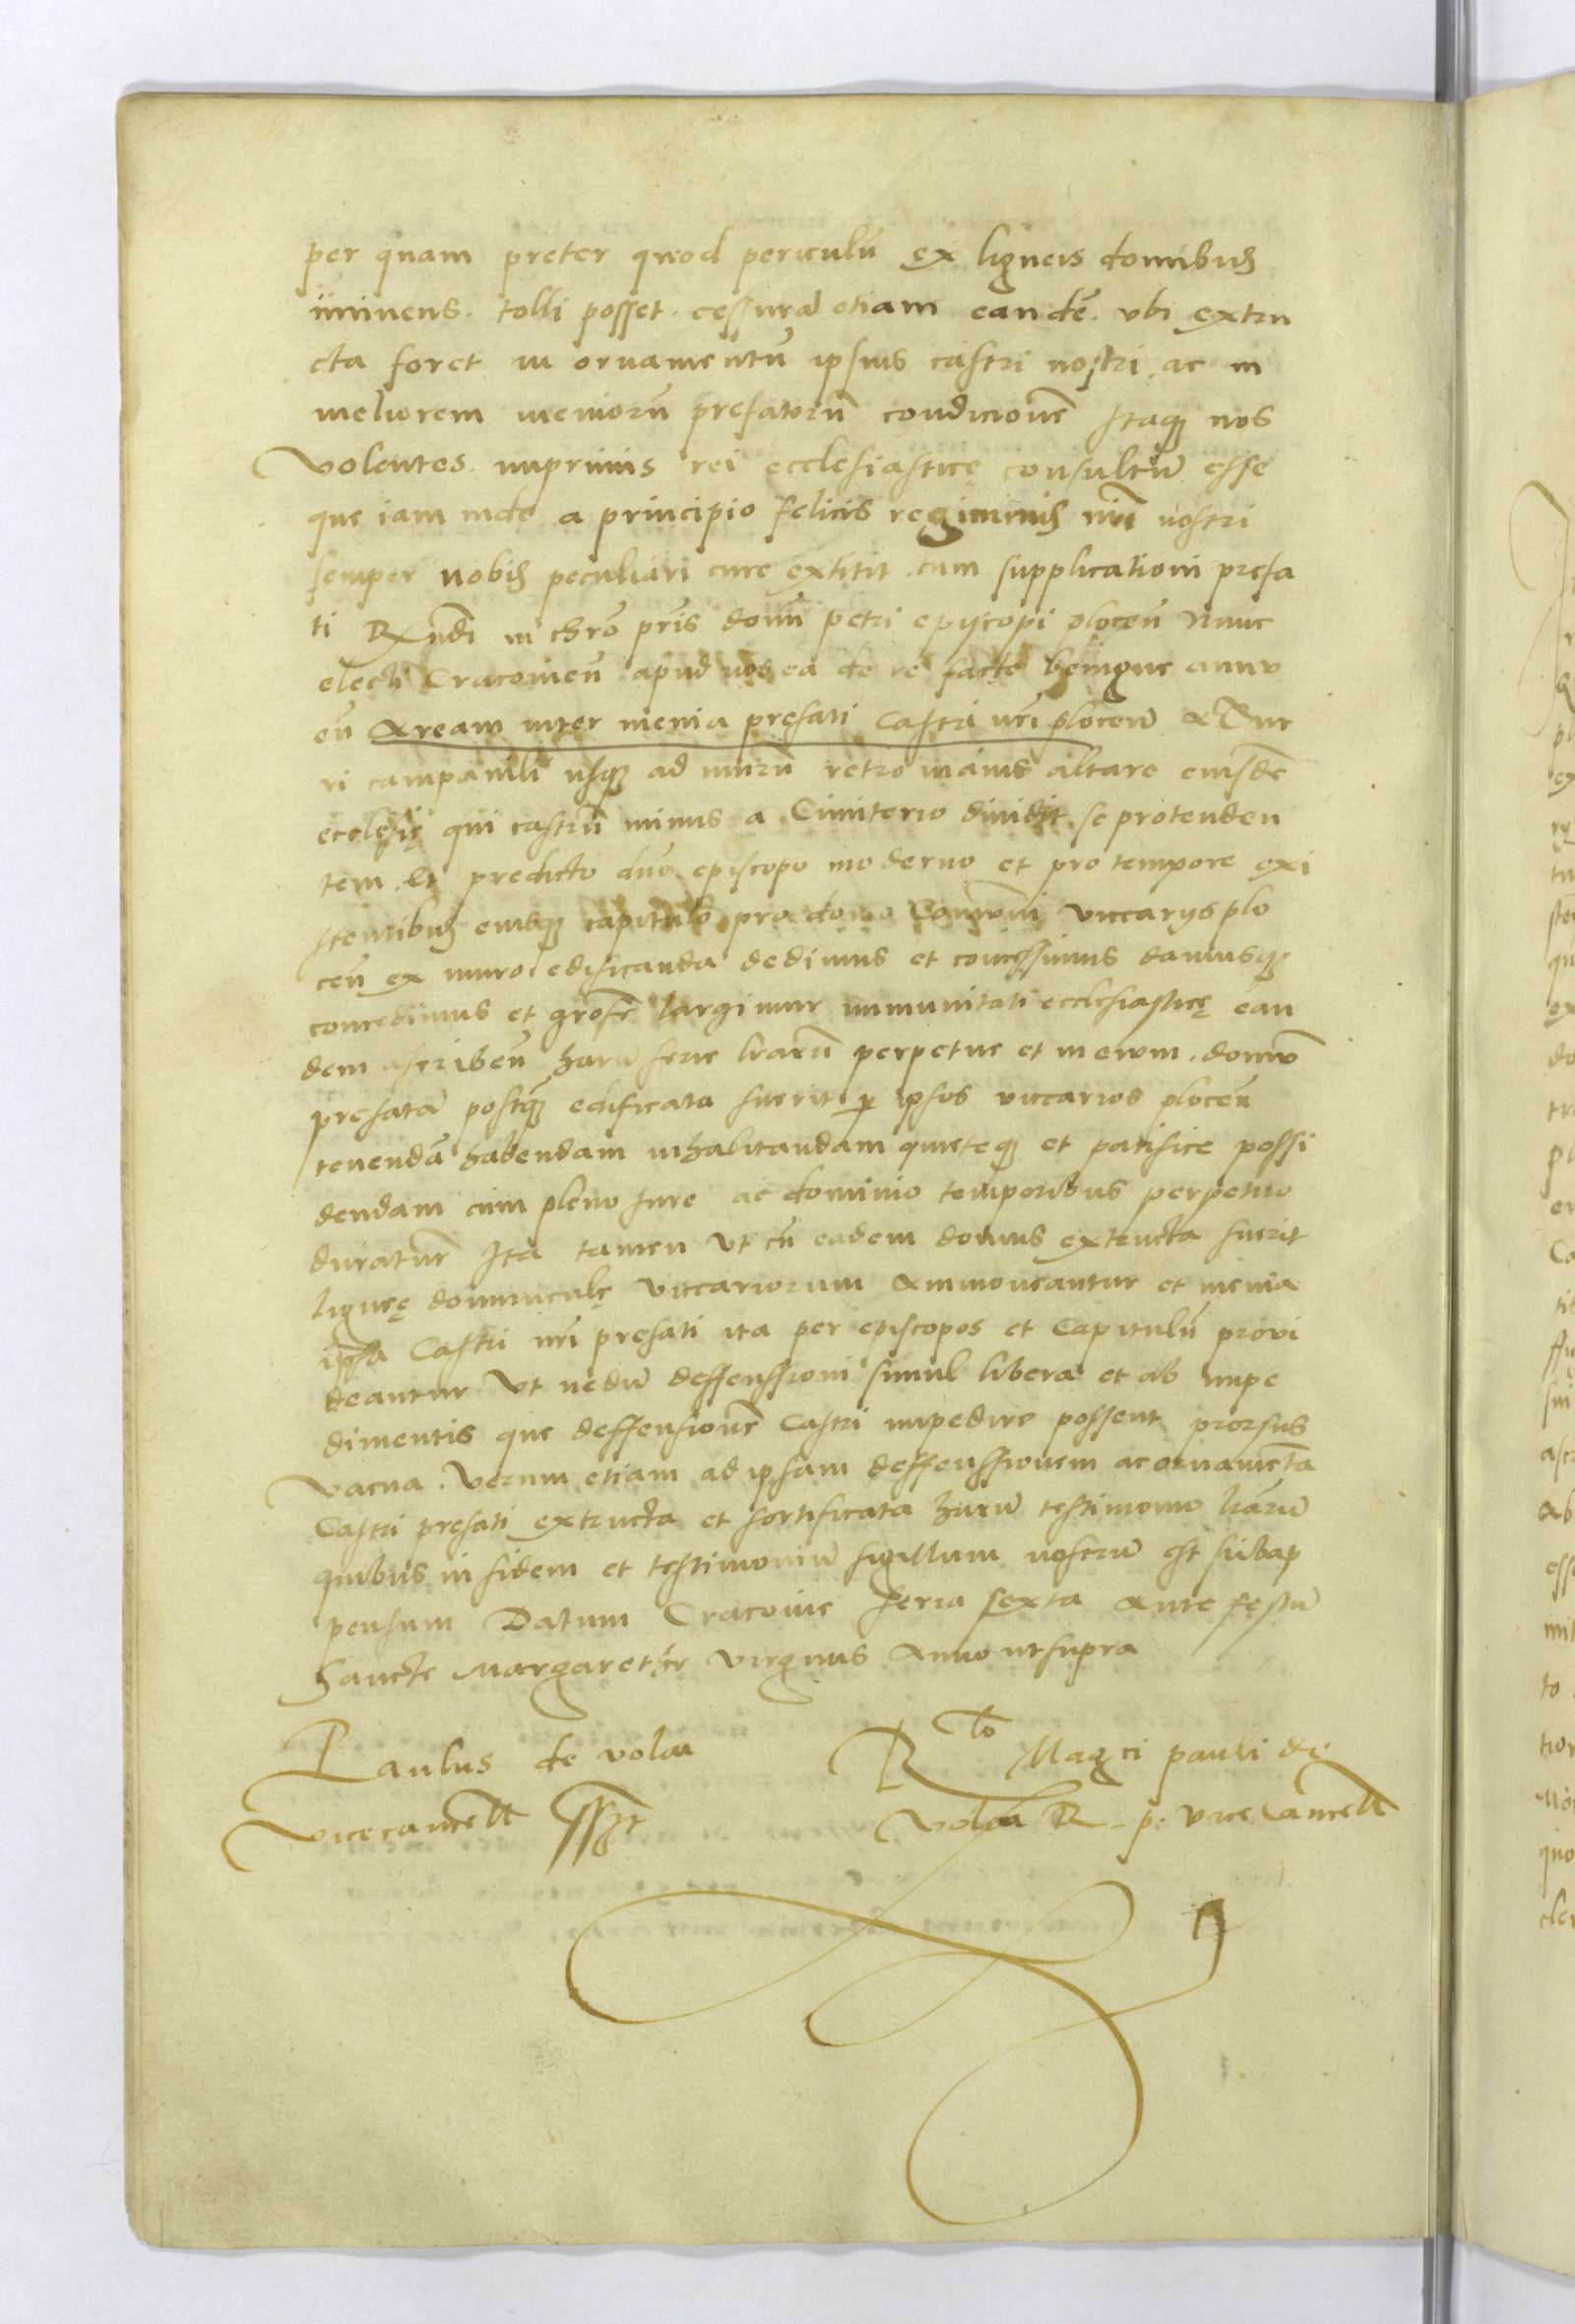 per quam preter quod periculū ex ligneis domibus
iminens. tolli posset. cessurā etiam eandē. ubi extru
cta foret in ornamentū ipsius castri nostri. ac in
meliorem meniorū prefatorū condicionē Itaq; nos
Volentes. inprimis rei ecclesiastice consultū esse
que iam inde a principio felicis regiminis nostri
semper nobis peculiari cure extitit. cum supplicationi prefa
ti Rxndi in chrō pris domī petri epyscopi plocēn Nunc
electi Cracovieñ apud nos ea de re facte benigne annu
eñ Aream inter menia prefati Castri nrī ploceñ a Tur
ri campanili usq; ad murū retro maius altare eiusdē
ecclesię qui castrū minus a Cimiterio dividit. se protenden
tem. Et predicto dño episcopo moderno et pro tempore exi
stentibus eiusq; capitulo pro domo Communi viccarys plo
ceñ ex muro edificanda dedimus et concessimus damusq;
concedimus et largimur immunitati ecclesiasticę ean
dem ascribeñ harū serie lrarū perpetue et in evum. domū
prefatā postq̃ edificata fuerit p ipsos viccarios plocēn
tenendā habendam inhabitandam quieteq; et pacifice possi
dendam cum pleno iure ac dominio temporibus perpetuo
duraturē Ita tamen Ut cū eadem domus extructa fuerit
lignęę domunculę viccariorum Ammoveantur et menia
ipsa Castri nrī prefati ita per episcopos et Capitulū provi
deantur Ut nedū deffenssioni simul libera et ab impe
dimentis que deffensionē Castri impedire possent prorsus
vacua. Verum etiam ad ipsam deffenssionem ac ornamēta
Castri prefati extructa et fortificata harū testimonio lrarū
quibus in fidem et testimoniū sigillum nostrū est subap
pensum Datum Cracovie feria sexta Ante festū
Sancte Margarethe virginis Anno utsupra
Paulus de vola Rlo Magci pauli de
Vicecancell sszt Vola R. p. vicecancell